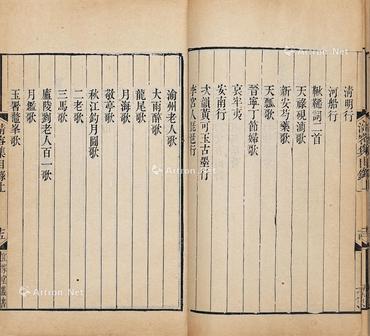 清明行
河船行
鞦韆詞二首
天祿硯滴歌
新安芍藥歌
天瓢歌
晉寧丁節婦歌
哀牢夷
安南行
次韻黃可玉古墨行
李宮人琵琶行
渝州老人歌
大雨醉歌
龍尾歌
月海歌
敬亭歌
秋江釣月圖歌
二老歌
三馬歌
廬陵劉老人百一歌
月鑑歌
玉署鼇峯歌
清容集目錄上
Artron.Net
Artron.Net